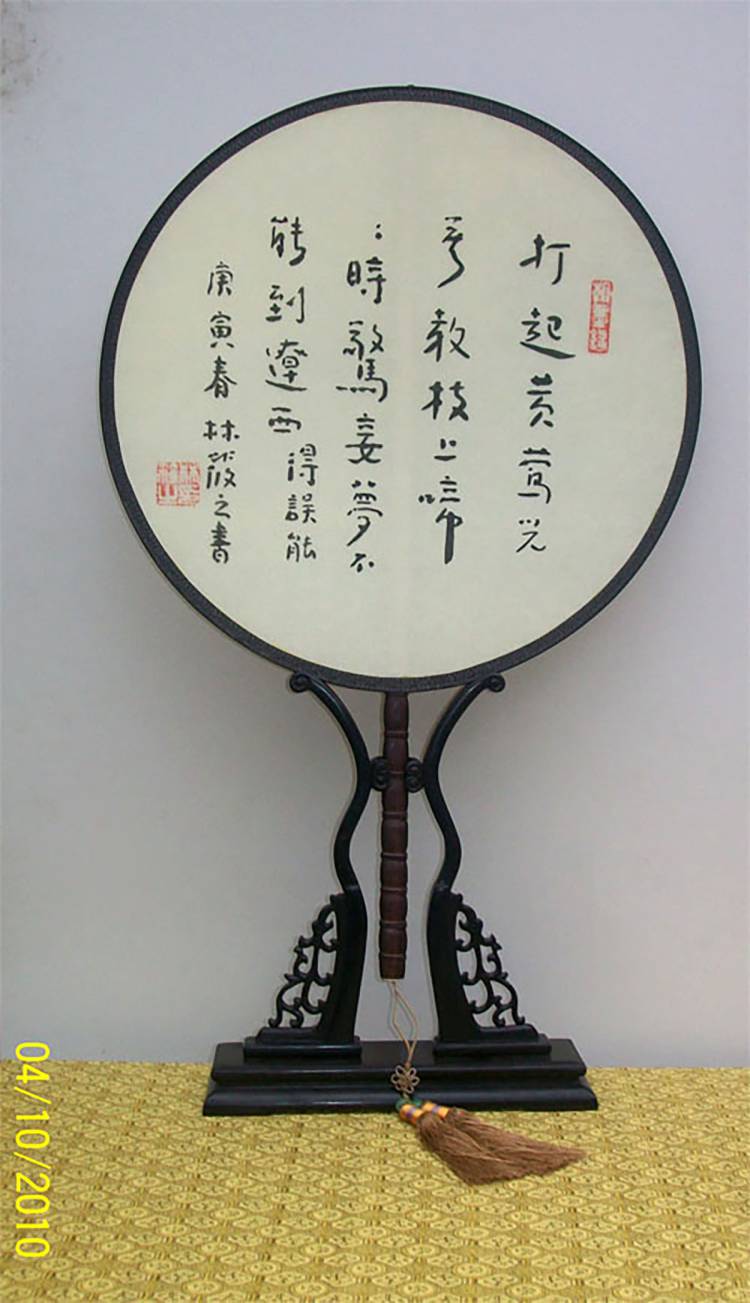 打起黄莺兒
莫教枝上啼
：時驚妾夢不
能到遼西
得誤能
庚寅春 林筱之書
04/10/2010